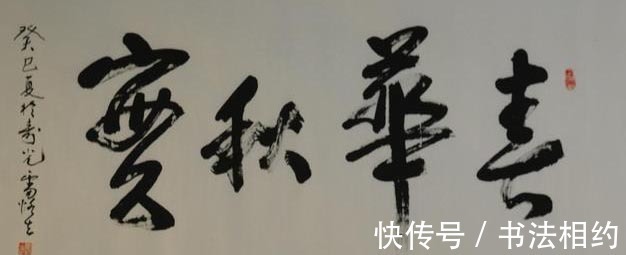 春華秋實
癸巳夏於寿光雷
快传号 / 书法相约